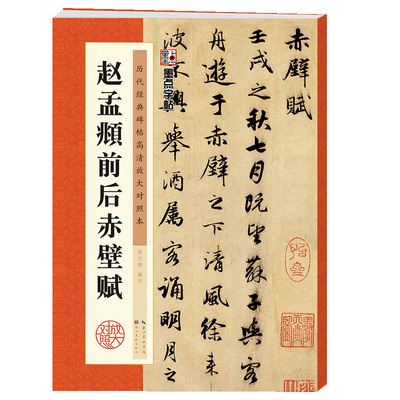 赤壁賦
壬戌之秋七月既望蘇子與客
舟遊于赤壁之下清風徐来
波不興舉酒属客誦明月之
墨点字帖
历代经典碑帖高清放大对照本
赵孟頫前后赤壁赋
放大
对照